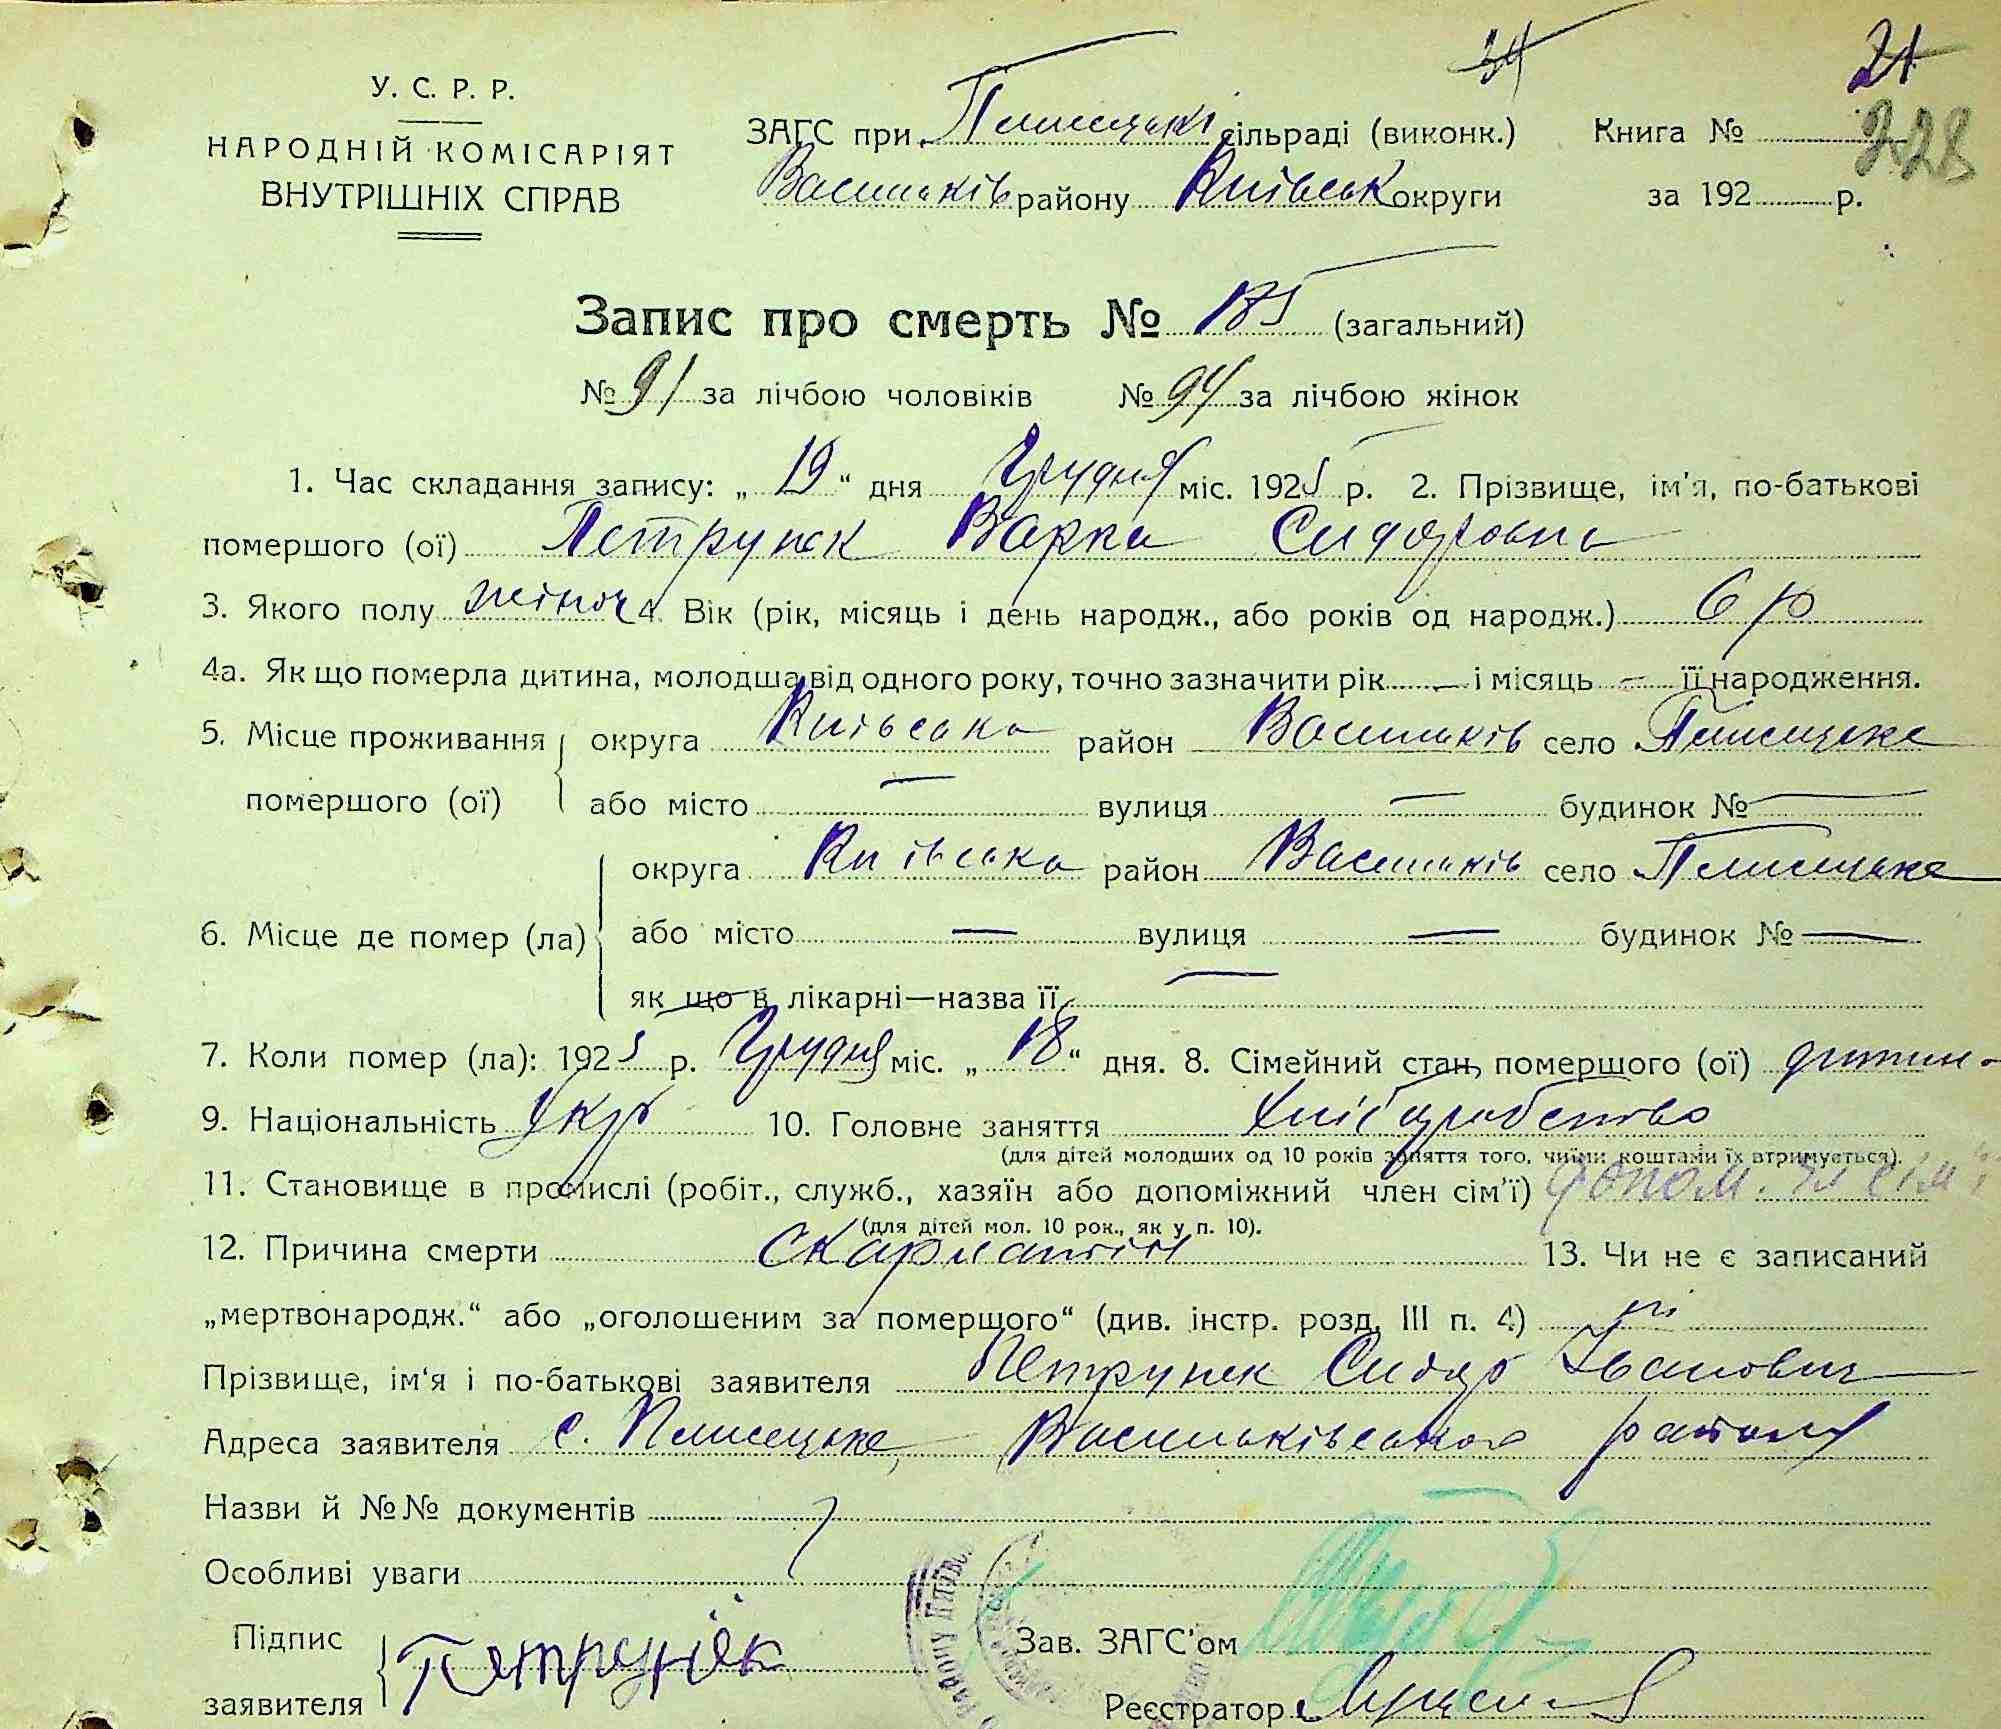 34 21
У. С. Р. Р. ЗАГС при Плисецькі сільраді (виконк.) Книга № 228
НАРОДНІЙ КОМІСАРІЯТ Васильків району Київськ округи за 192 р.
ВНУТРІШНІХ СПРАВ
Запис про смерть № 185 (загальний)
№ 91 за лічбою чоловіків № 94 за лічбою жінок
1. Час складання запису: „ 19 “ дня Грудня міс. 1925 р. 2. Прізвище, ім'я, по-батькові
помершого (ої) Петрунєк Варка Сидоровна
3. Якого полу жіноч 4. Вік (рік, місяць і день народж., або років од народж.) 6 р
4а. Як що померла дитина, молодша від одного року, точно зазначити рік — і місяць — її народження.
5. Місце проживання округа Київська район Васильків село Плисецьке
помершого (ої) або місто — вулиця — будинок № —
округа Київська район Васильків село Плисецьке
6. Місце де помер (ла) або місто — вулиця — будинок № —
як що в лікарні—назва її —
7. Коли помер (ла): 1925 р. Грудня міс. „ 18 “ дня. 8. Сімейний стан помершого (ої) дитин-
9. Національність Укр 10. Головне заняття Хліборобство
(для дітей молодших од 10 років заняття того, чиїми коштами їх втримується).
11. Становище в промислі (робіт., служб., хазяїн або допоміжний член сім'ї) допом. чл сім'ї
(для дітей мол. 10 рок., як у п. 10).
12. Причина смерти скарлатін 13. Чи не є записаний
„мертвонародж.“ або „оголошеним за померщого“ (див. інстр. розд. III п. 4) ні
Прізвище, ім'я і по-батькові заявителя Петрунєк Сидор Іванович
Адреса заявителя с. Плисецьке, Васильківського района
Назви й №№ документів
Особливі уваги
Підпис Зав. ЗАГС'ом
заявителя Петрунєк
Реєстратор